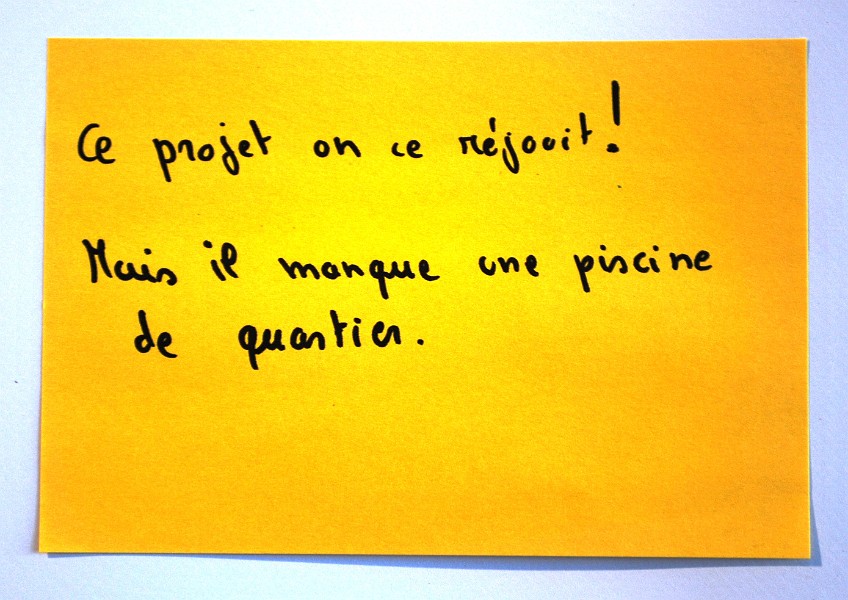 Ce projet on ce réjouit!
Mais il manque une piscine
de quartier.